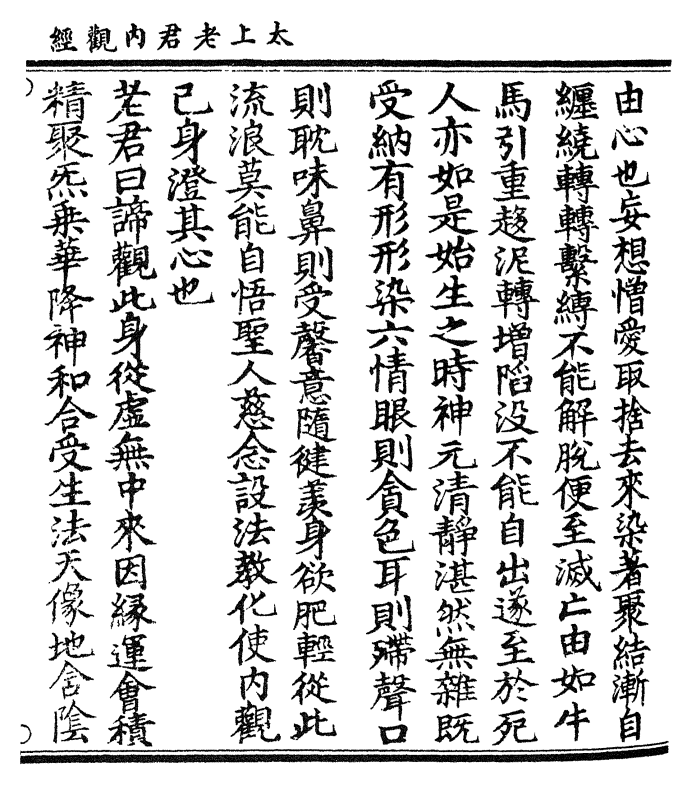 太上老君內觀經
由心也妄想憎愛取捨去來染著聚結漸自
纏繞轉轉繫縛不能解脫便至滅亡由如牛
馬引重趍泥轉增陷没不能自出遂至於死
人亦如是始生之時神元清靜湛然無雜既
受納有形形染六情眼則貪色耳則滯聲口
則耽味鼻則受馨意隨健羨身欲肥輕從此
流浪莫能自悟聖人慈念設法教化使內觀
己身澄其心也
老君曰諦觀此身從虛無中來因緣運會積
精聚炁乗華降神和合受生法天像地含陰